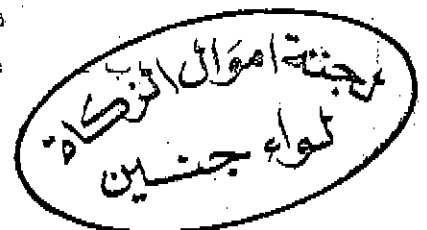 لجنة اموال الزكاة
لواء جنين